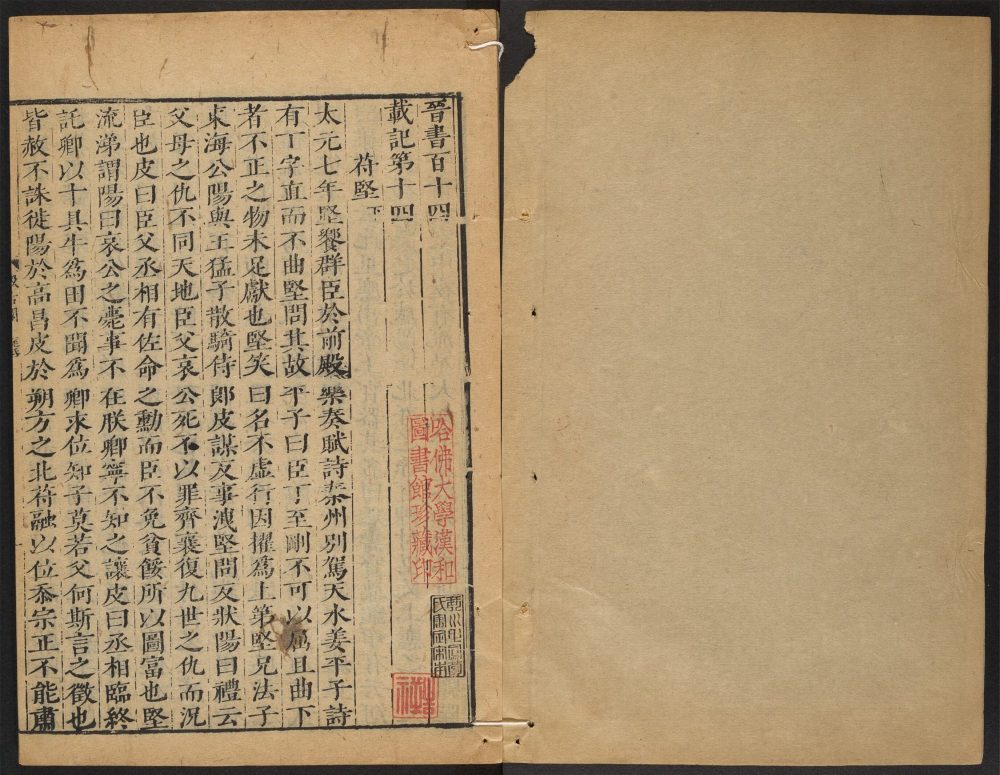 晉書百十四
載記第十四
苻堅下
太元七年堅饗群臣於前殿樂奏賦詩秦州別駕天水姜平子詩
有丁字直而不曲堅問其故平子曰臣丁至剛不可以屈且曲下
者不正之物未足獻也堅笑曰名不虛行因擢爲上第堅兄法子
東海公陽與王猛子散騎侍郎皮謀反事洩堅問反狀陽曰禮云
父母之仇不同天地臣父哀公死不以罪齊襄復九世之仇而況
臣也皮曰臣父丞相有佐命之勳而臣不免貧餒所以圖富也堅
流涕謂陽曰哀公之薨事不在朕卿寧不知之讓皮曰丞相臨終
託卿以十具牛爲田不聞爲卿求位知子莫若父何斯言之徵也
皆赦不誅徙陽於高昌皮於朔方之北苻融以位忝宗正不能肅
哈佛大學漢和
圖書館珍藏印